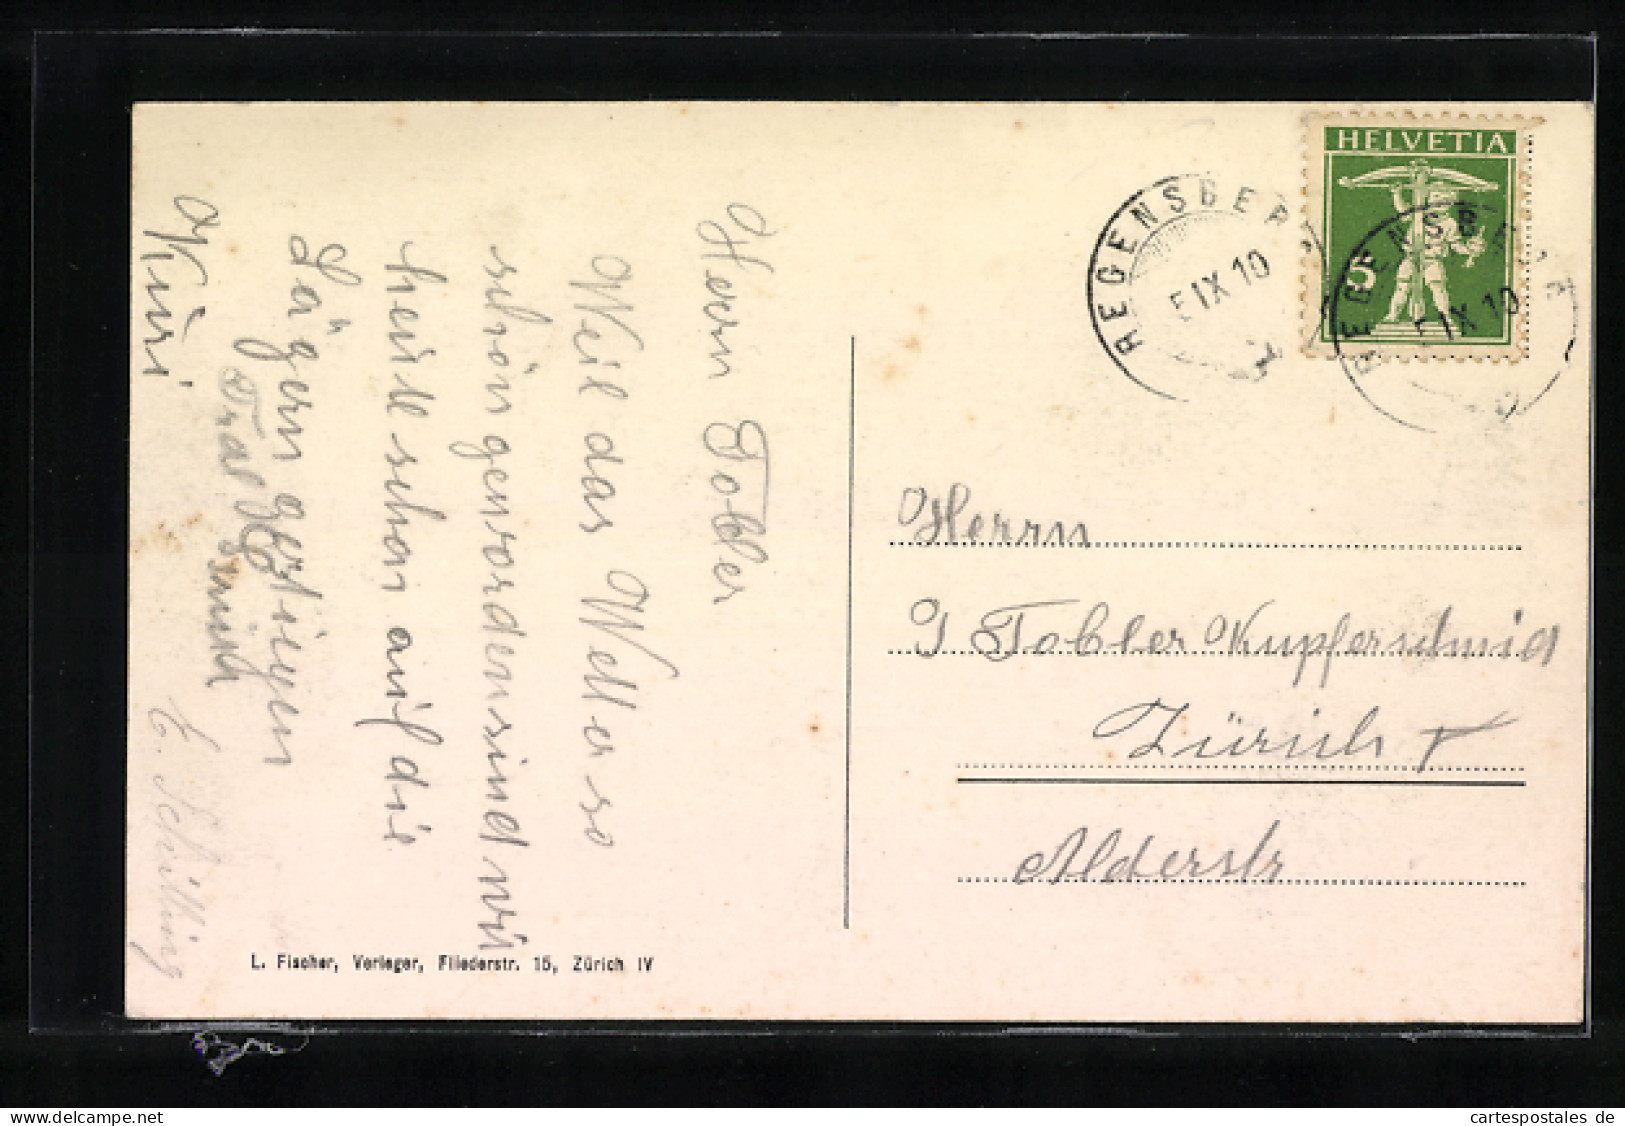 Herrn Tobler
Weil das Wetter so
schön geworden sind wir
heute schon auf die
Lägern gestiegen
HELVETIA
5
REGENSBER
5 IX 10
REGENSBERG
5 IX 10
Herrn
J Tobler Kupferschmid
Zürich V
Alderstr
E. Schilling
L. Fischer, Verleger, Fliederstr. 15, Zürich IV
cartespostales de